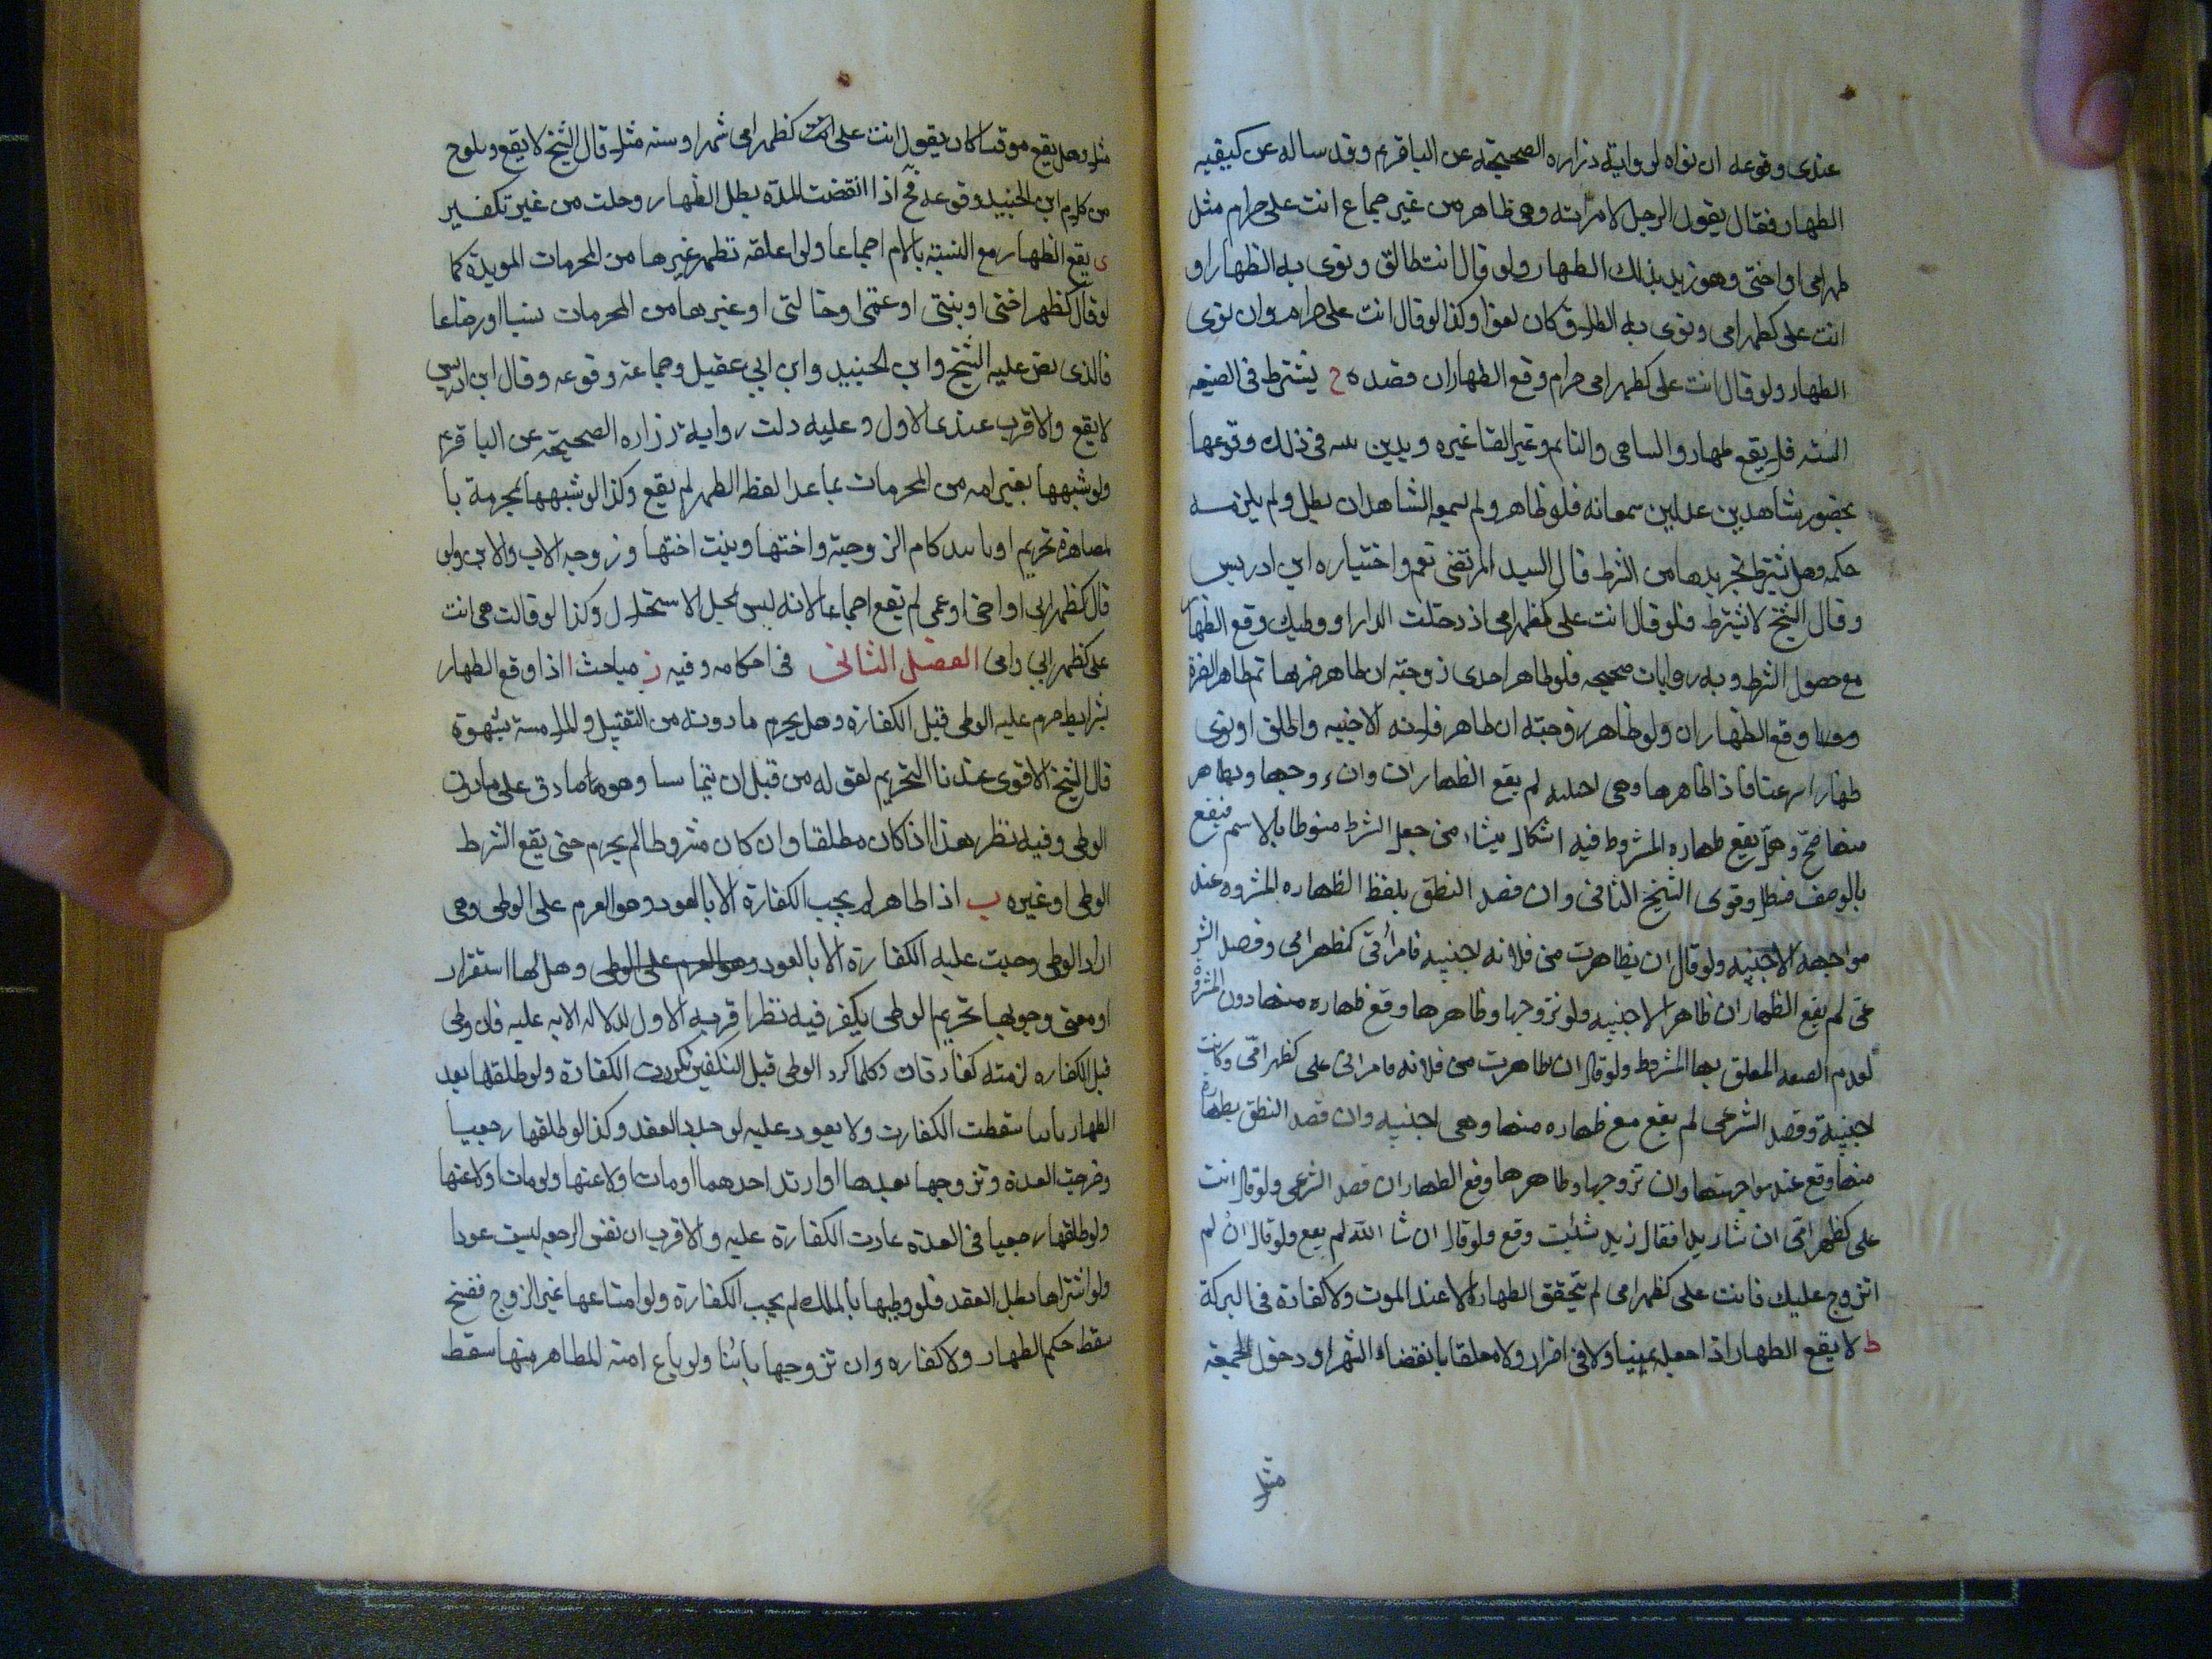 عندى وقوعه ان نواه لرواية زراره الصحيحة عن الباقرم وقد ساله عن كيفيه
الظهار فقال يقول الرجل لامراته وهى ظاهر من غير جماع انت على حرام مثل
ظهر امى او اختى وهو يريد بذلك الظهار ولو قال انت طالق ونوى به الظهار او
انت على كظهر امى ونوى به الطلاق كان لغوا وكذا لو قال انت على حرام وان نوى
الظهار ولو قال انت على كظهر امى حرام وقع الظهار ان قصده ح يشترط فى الصيغه
النيه فلا يقع ظهار والساهى والنائم وغير القا غيره ويدين بنيه فى ذلك وقوعها
بحضور شاهدين عدلين سمعانه فلو ظاهر ولم يسمعه الشاهدان بطل ولم يلزمه
حكمه وهل يشترط تجريدها من الشرط قال السيد المرتضى نعم واختياره ابن ادريس
وقال الشيخ لا يشترط فلو قال انت على كظهر امى اذ دخلت الدار او وطيك وقع الظهار
مع حصول الشرط وبه روايات صحيحه فلو ظاهر احدى زوجته ان ظاهر ضرتها ثم ظاهر الضرة
وقع الظهاران ولو ظاهر زوجته ان ظاهر فلانه الاجنبيه واطلق او نوى
ظهارا شرعتا فاذا ظاهرها وهى اجنبيه لم يقع الظهاران وان زوجها وظاهر
منها صح وهل يقع ظهاره المشروط فيه اشكال ينشاء من جعل الشرط منوطا بالاسم فيقع
بالوصف فيبطل وقوى الشيخ الثانى وان قصد النطق بلفظ الظهاره المشروه عند
مواجهه الاجنبيه ولو قال ان يظاهرت من فلانه اجنبيه فامراتى كظهر امى وقصد الشر
عى لم يقع الظهار ان ظاهر الاجنبيه ولو تزوجها وظاهرها وقع ظهاره منها دون المشرو
لعدم الصفه المعلق بها المشروط ولو قال ان ظاهرت من فلانه فامراتى على كظهر امى وكانت
اجنبية وقصد الشرعى لم يقع مع ظهاره منها وهى اجنبيه وان قصد النطق بظهاره
منها وقع عند مواجهتها وان تزوجها وظاهرها وقع الظهار ان قصد الشرعى ولو قال انت
على كظهر امى ان شا زيد فقال زيد شئت وقع ولو قال ان شا الله لم يقع ولو قال ان لم
اتزوج عليك فانت على كظهر امى لم يتحقق الظهار الا عند الموت ولا كفارة فى التركة
ط لا يقع الظهار اذا جعله يمينا ولا فى اضرار ولا معلقا بانقضاء الشهر او دخول الجمعه
مثلا
مثلا وهل يقع موقتا كان يقول انت على انت كظهر امى شهرا وسنه مثلا قال الشيخ لا يقع ويلوح
من كلام ابن الجنيد وقوعه فح اذا انقضت المدة بطل الظهار وحلت من غير تكفير
ى يقع الظهار مع التشبيه بالام اجماعا ولو علقه بظهر غيرها من المحرمات الموبدة كما
لو قال كظهر اختى او بنتى او عمتى وخالتى او غيرها من المحرمات نسبا او رضاعا
فالذى نص عليه الشيخ وابن الجنيد وابن ابي عقيل وجماعة وقوعه وقال ابن ادريس
لا يقع والاقرب عندى الاول وعليه دلت رواية زراره الصحيحة عن الباقرم
ولو شبهها بغير امه من المحرمات بما عدا لفظه الظهر لم يقع وكذا لو شبهها بمحرمة با
لمصاهرة تحريم او كام الزوجية واختها وبنت اختها وزوجه الاب والابن ولو
قال كظهر ابى او اخى او عمى لم يقع اجماعا لانه ليس محل الاستحلال وكذا لو قالت هى انت
على كظهر ابي وامى الفصل الثانى فى احكامه وفيه ز مباحث ا اذا وقع الظهار
بشرايط حرم عليه الوطى قبل الكفارة وهل يحرم ما دونه من التقبيل والملامسة بشهوة
قال الشيخ الاقوى عندنا التحريم لقوله من قبل ان يتماسا وهو صادق على ما دون
الوطى وفيه نظر هذا اذا كان مطلقا وان كان مشروطا لم يحرم حتى يقع الشرط
الوطى او غيره ب اذا ظاهر لم يجب الكفارة الا بالعود وهو العزم على الوطى ومى
اراد الوطى وجبت عليه الكفارة الا بالعود وهو العزم على الوطى وهل لها استقرار
او معنى وجوبها تحريم الوطى يكفر فيه نظر اقربه الاول لدلاله الايه عليه فان وطى
قبل الكفاره لزمته كفارتان وكلما كرر الوطى قبل التكفير تكررت الكفارة ولو طلقها بعد
الظهار باينا سقطت الكفارت ولا يعود عليه لو جدد العقد وكذا لو طلقها رجعيا
وخرجت العدة وتزوجها بعدها او ارتد احدهما او مات او لاعنها ولو مات ولاعنها
ولو طلقها رجعيا فى العدة عادت الكفارة عليه والاقرب ان نفس الرجعه ليست عودا
ولو اشتراها بطل العقد فلو وطيها بالملك لم يجب الكفارة ولو ابتاعها غير الزوج ففسخ
سقط حكم الظهار ولا كفاره وان تزوجها باينا ولو باع امته المظاهر منها سقط